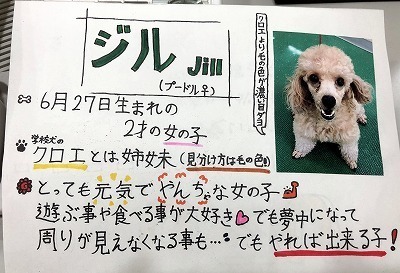 ジル Jill
(プードル♀)
クロエより毛の色が濃い目ダヨ
6月27日生まれの
2才の女の子
学校犬の
クロエとは姉妹(見分け方は毛の色)
とっても元気でやんちゃな女の子
遊ぶ事や食べる事が大好き♥でも夢中になって
周りが見えなくなる事も…でもやれば出来る子!